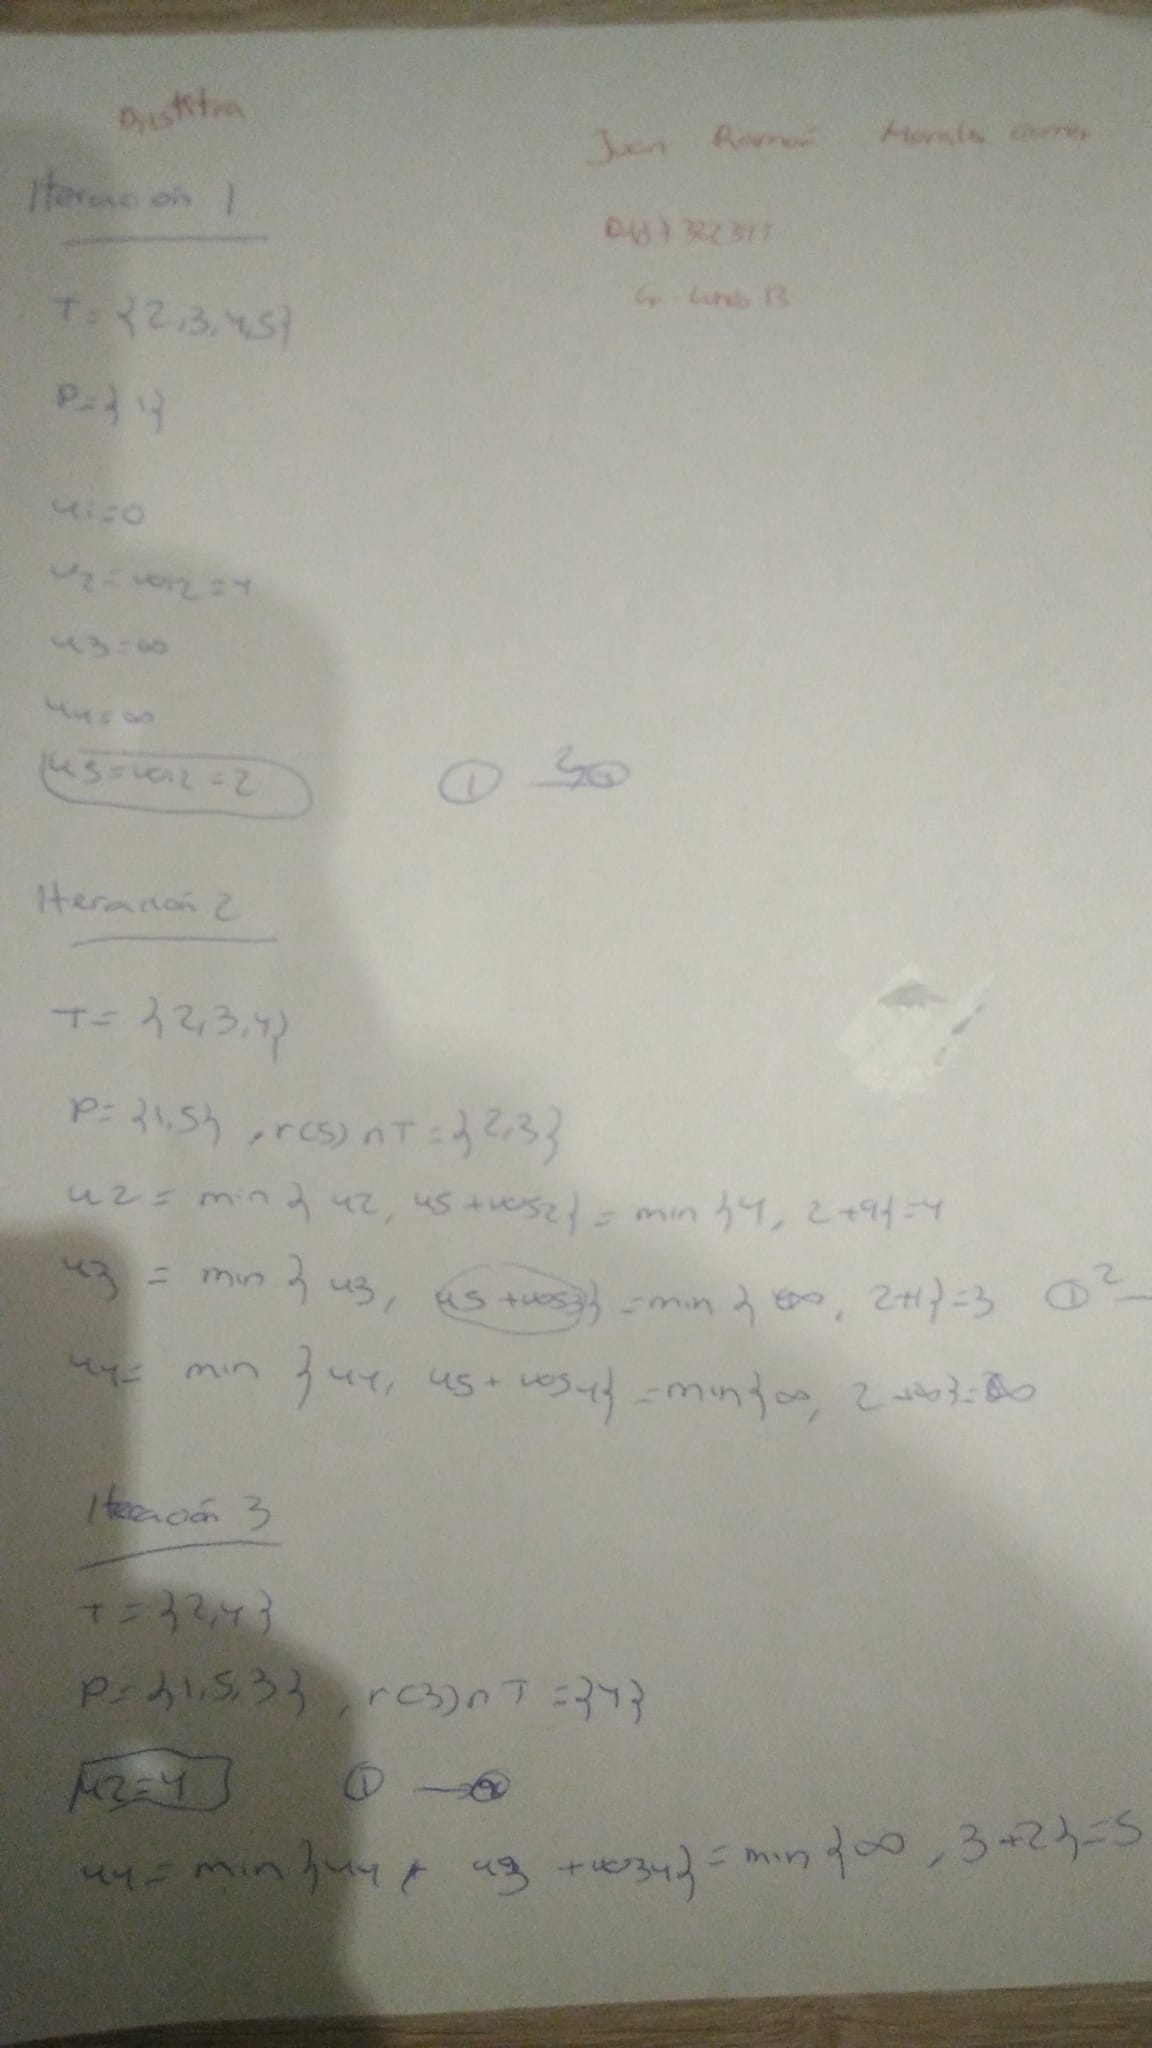 Dijsktra
Juan Ramón Morales Gómez
Iteración 1
G Lunes 13
T = {2,3,4,5}
P = {1}
u1=0
u2 = ω12 = 4
u3 = ∞
u4 = ∞
u5 = ω12 = 2 ①
Iteración 2
T = {2,3,4}
P = {1,5} , r(5) ∩ T = {2,3}
u2 = min {u2, u5 + ω52} = min {4, 2+9} = 4
u3 = min {u3, u5 + ω53} = min {∞, 2+1} = 3 ① 2
u4 = min {u4, u5 + ω54} = min {∞, 2+∞} = ∞
Iteración 3
T = {2,4}
P = {1,5,3} , r(3) ∩ T = {4}
u2 = 4 ① → ②
u4 = min {u4, u3 + ω34} = min {∞, 3+2} = 5